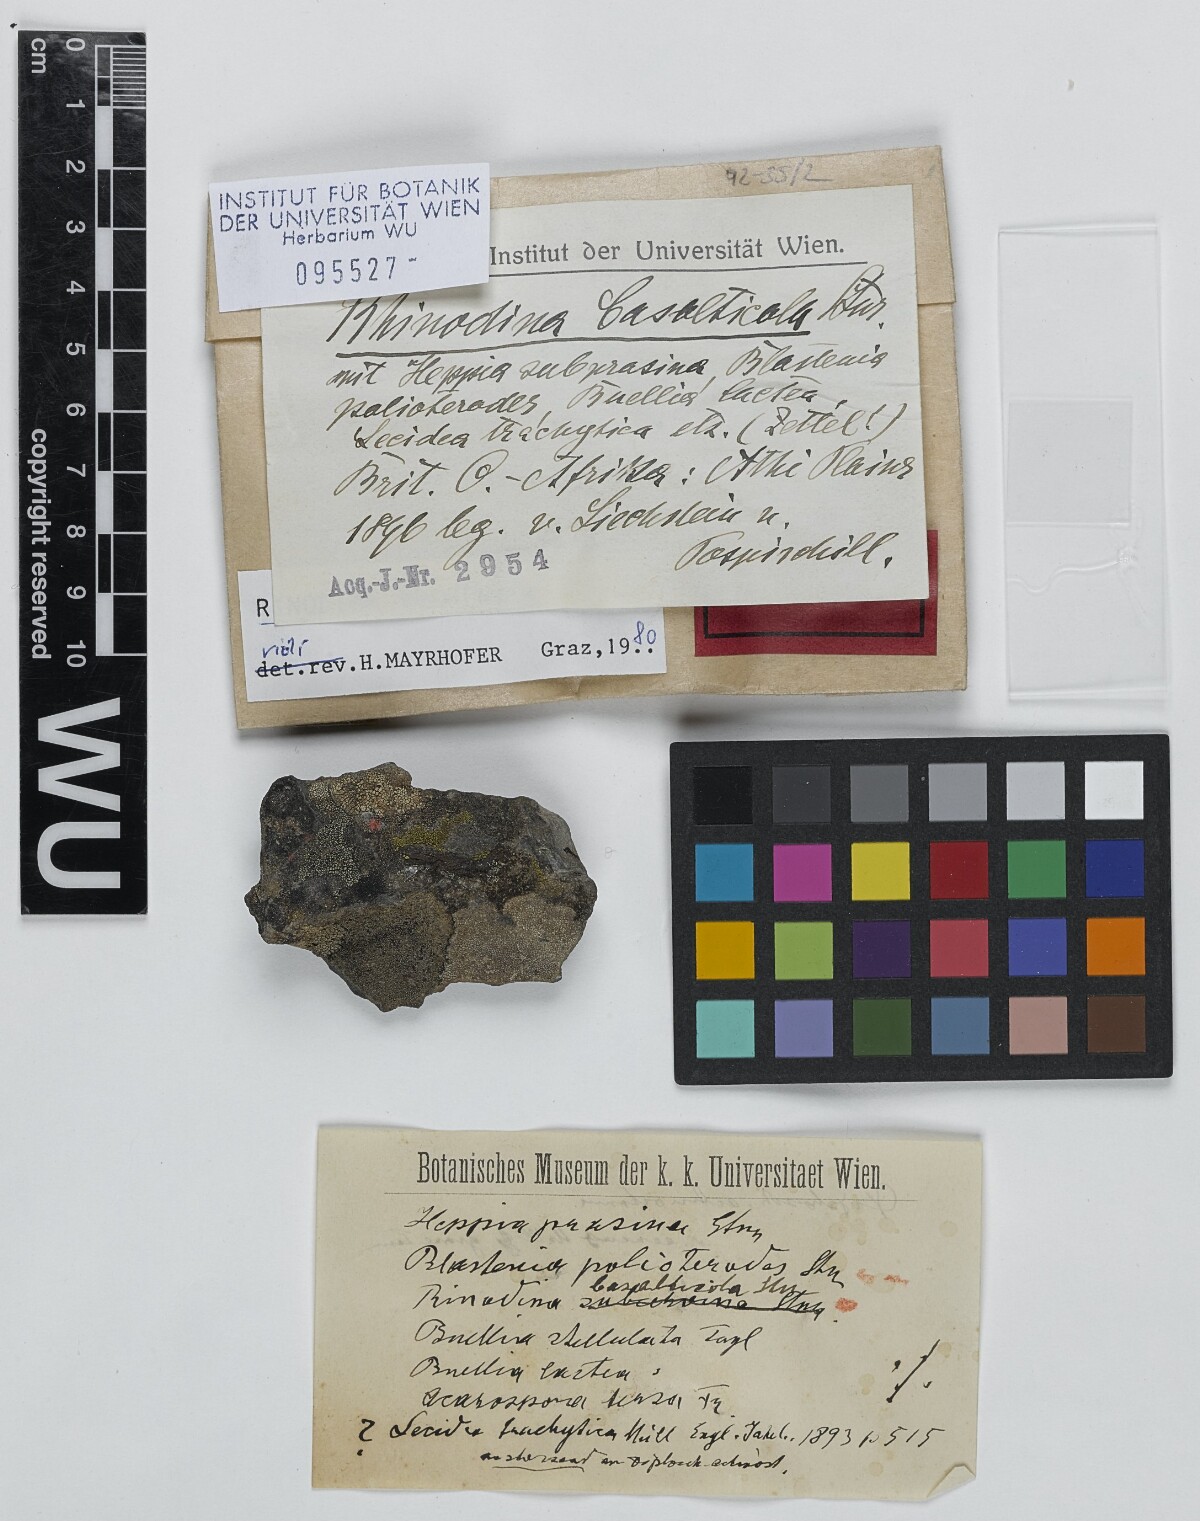 cm
0
1
2
3
4
5
6
7
8
9
10
copyright reserved
WU
92-35/2
INSTITUT FÜR BOTANIK
DER UNIVERSITÄT WIEN
Herbarium WU
095527-
Institut der Universität Wien.
Rhinodina basalticola Stnr.
mit Heppia subprasina, Blastenia
polioterodes, Buellia lactea,
Lecidea trachytica etz. (Zettel!)
Brit. O.-Afrika: Athi Plains
1896 leg. v. Liechstein u.
Pospischill.
Acq.-J.-Nr. 2954
R
vidi
det.rev. H. MAYRHOFER Graz, 1980
Botanisches Museum der k. k. Universitaet Wien.
Heppia prasina Stnr
Blastenia polioterodes Stnr
basalticola Stnr
Rinodina Stnr
Buellia stellulata Tayl
Buellia lactea
Acarospora Fr.
? Lecidea trachytica Müll Engl. Jahrb. 1893 p 515